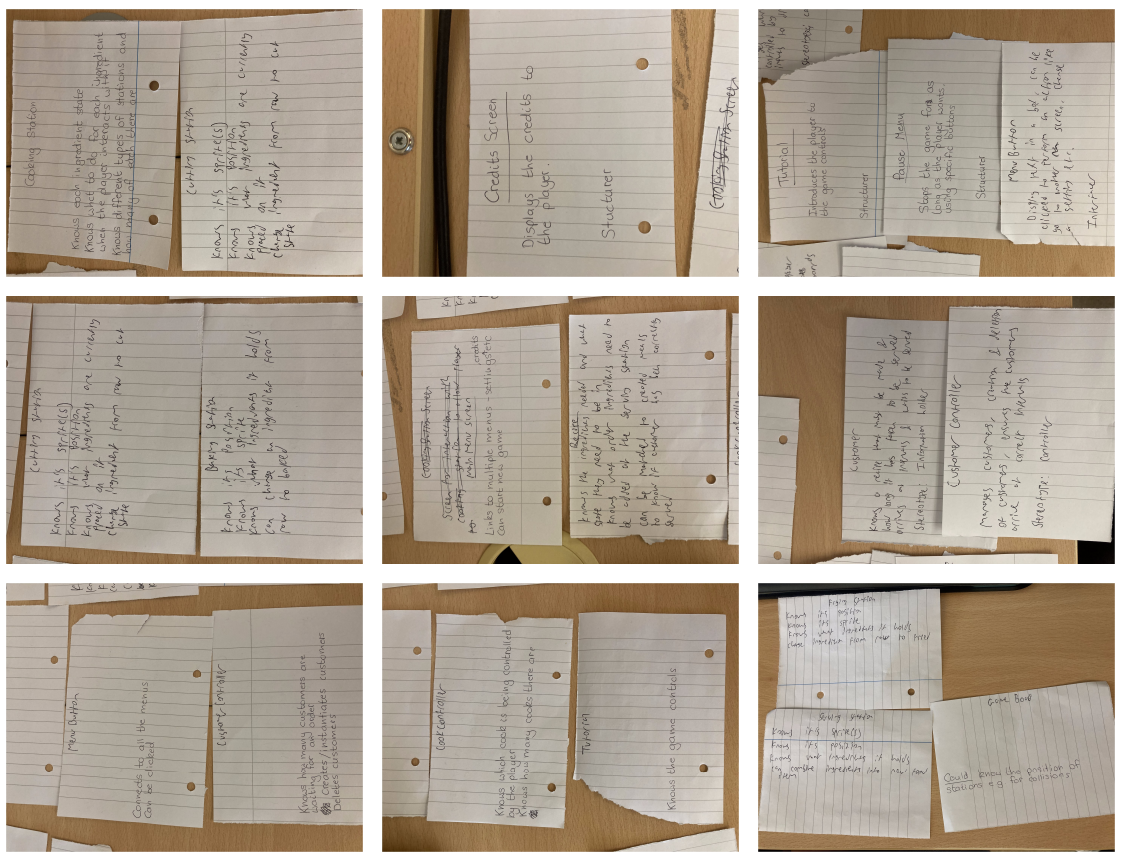 Cooking Station
Knows each ingredient state
Knows what to do for each ingredient
when the player interacts with it
Knows different types of stations and
how many of each there are
Cutting Station
Knows it's sprite(s)
Knows it's position
Knows what ingredients are currently
placed on it
change ingredient from raw to cut
state
Credits Screen
Displays the credits to
the player.
Structurer
Cooking Button Screen
Tutorial
Introduces the player to
the game controls
Structurer
Pause Menu
Stops the game for as
long as the player wants.
using specific buttons
Structurer
Menu Button
Display text in a box, can be
clicked to perform an action like
go to another screen, change
a setting etc.
Interfacer
Cutting Station
Knows it's sprite(s)
Knows it's position
Knows what ingredients are currently
placed on it
change ingredient from raw to cut
state
Baking Station
Knows its position
Knows its sprite
Knows what ingredients it holds
can change an ingredient from
raw to baked
Cooking Button Screen
Screen for interaction with
cooking station to allow player
Main Menu Screen
Links to multiple menus - settings etc
Can start new game
credits
Recipe
Knows the ingredients needed and what
state they need to be in
Knows what order ingredients need to
be added at the serving station
can be matched to created meals
to know if customer has been correctly
served
Customer
Knows a recipe that must be made &
how long it has taken to be served
arrives at intervals & waits to be served
Stereotype: Information holder
Customer Controller
Manages customers control & deletion
of customers, ensures the customers
arrive at correct intervals
Stereotype: Controller
Menu Button
Connects to all the menus
Can be clicked
Customer Controller
Knows how many customers are
waiting for an order
Creates/instantiates customers
Deletes customers
Cook Controller
Knows which cook is being controlled
by the player
Knows how many cooks there are
Tutorial
Knows the game controls
Frying Station
Knows its position
Knows its sprite
Knows what ingredients it holds
change ingredient from raw to fried
Serving Station
Knows it's sprite(s)
Knows its position
Knows what ingredients it holds
can combine ingredients into new food
item
Game Board
Could know the position of
stations e.g. for collisions